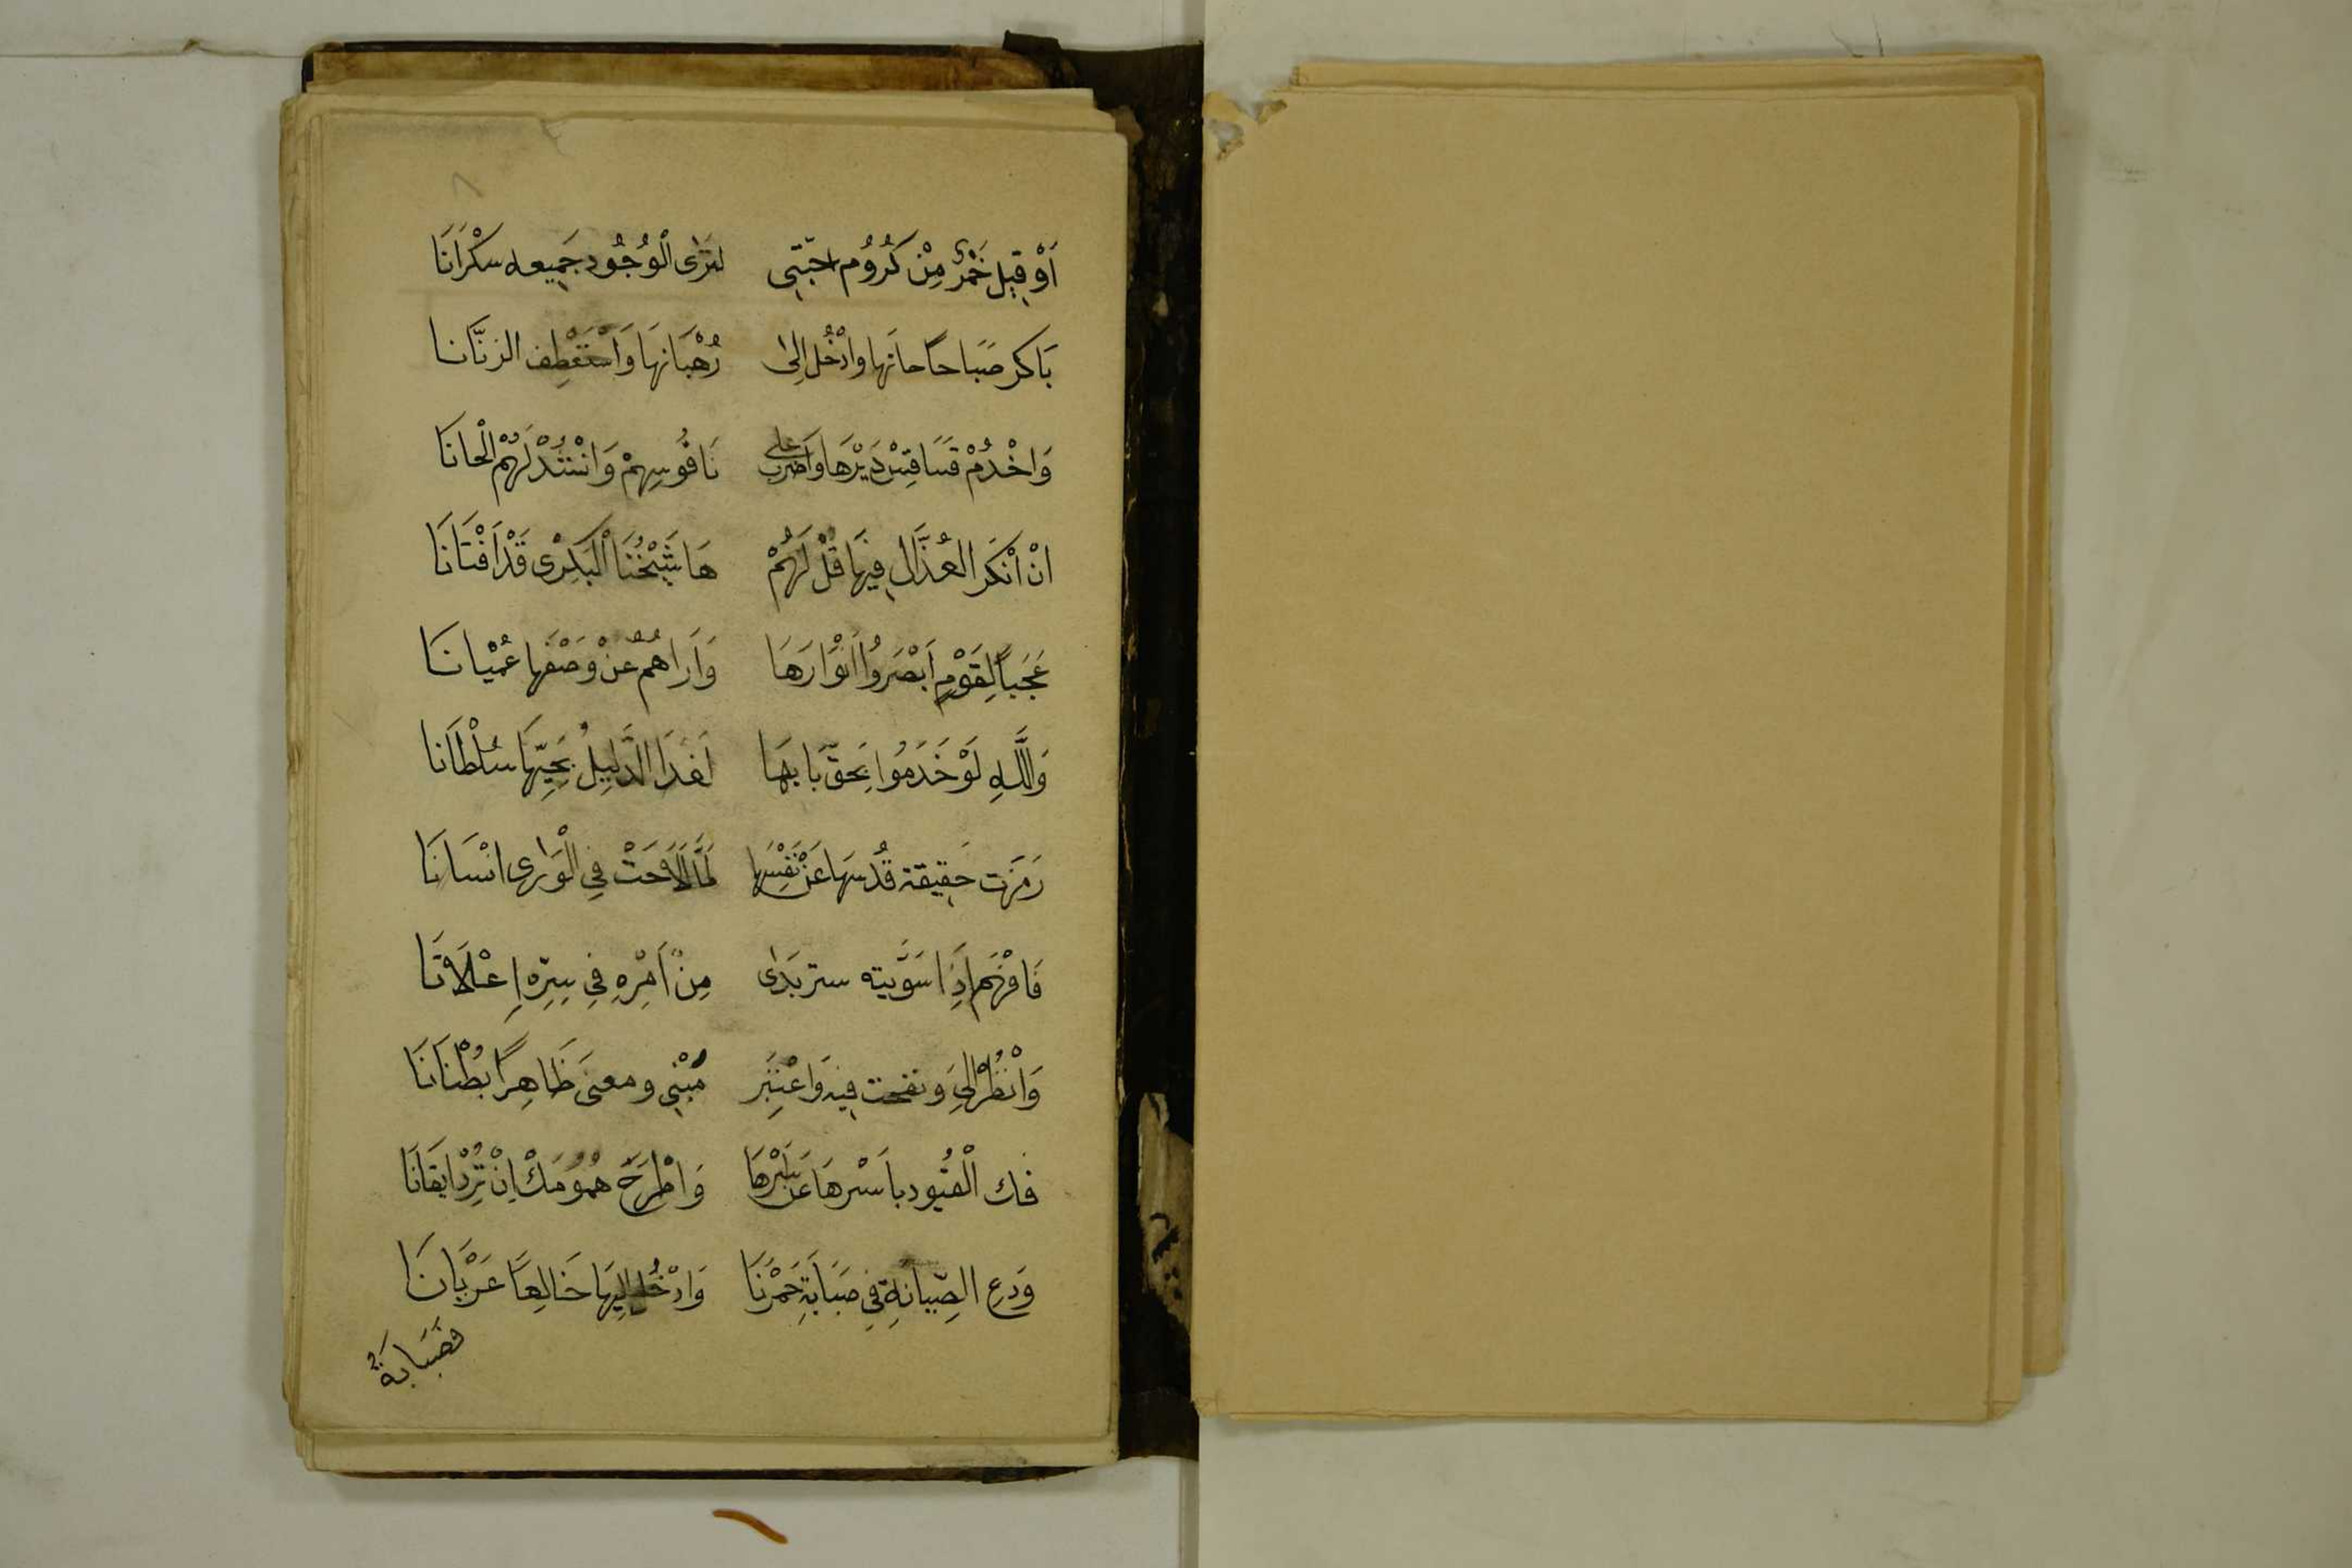 ٨
اَوْ قِيلَ خَمْرٌ مِنْ كُرُوُمِ احبّتِى لتَرَى الْوُجُود جَمِيعه سَكْرَانَا
بَاكر صَبَاحًا حانَها وادْخُل اِلىٰ رُهْبَانهَا وَاسْتَعْطِف الرنَّانا
وَاخْدُمْ قَسَاقِسْ دَيْرْهَا وَاَضرب على نَاقُوسِهِمْ وَانْشُدْ لَهُمْ الْحانَا
انْ اَنْكَر العُذَّال فِيهَا قُلْ لَهُمْ هَا شَيْخُنَا الْبَكرِى قَدْ اَفْتَانَا
عَجَباً لِقَوْمٍ اَبْصَرُوُا اَنْوَارَهَا وَاَرَاهُمُ عَنْ وَصْفهَا عُمْيانَا
وَاللَّهِ لَوْ خَدَمُوا بَحَقّ بَابهَا لَغَدَا الذَّلِيلُ بِحَيّهَا سُلْطَانا
رَمَزَت حَقِيقة قُدسهَا عَنْ نَفْسِهَا لَمَّا لَاحَتْ فِي الْوَرى انْسَانَا
فَافْهَم اِذَا سَوَّيته ستر بَدٰى مِنْ اَمْرِهِ فِي سِرِّهِ اِعْلَانَا
وَانْظُرْ اِلىَ ونفخت فِيهِ وَاعْتِبَر مَبْنِى ومعنىَ ظَاهِراً بُطْنَانَا
فك الْقُيُود باَسْرهَا عَن سَيْرهَا وَاطْرَحَ هُمُومَكْ اِنْ تُرِدْ ايقَانَا
وَدِعِ الصِّيانَةِ فِي صَبَابَةِ خَمْرنَا وَادْخُل اِليهَا خَالِعًا عَرْيَانَا
فصَبَابَةٌ